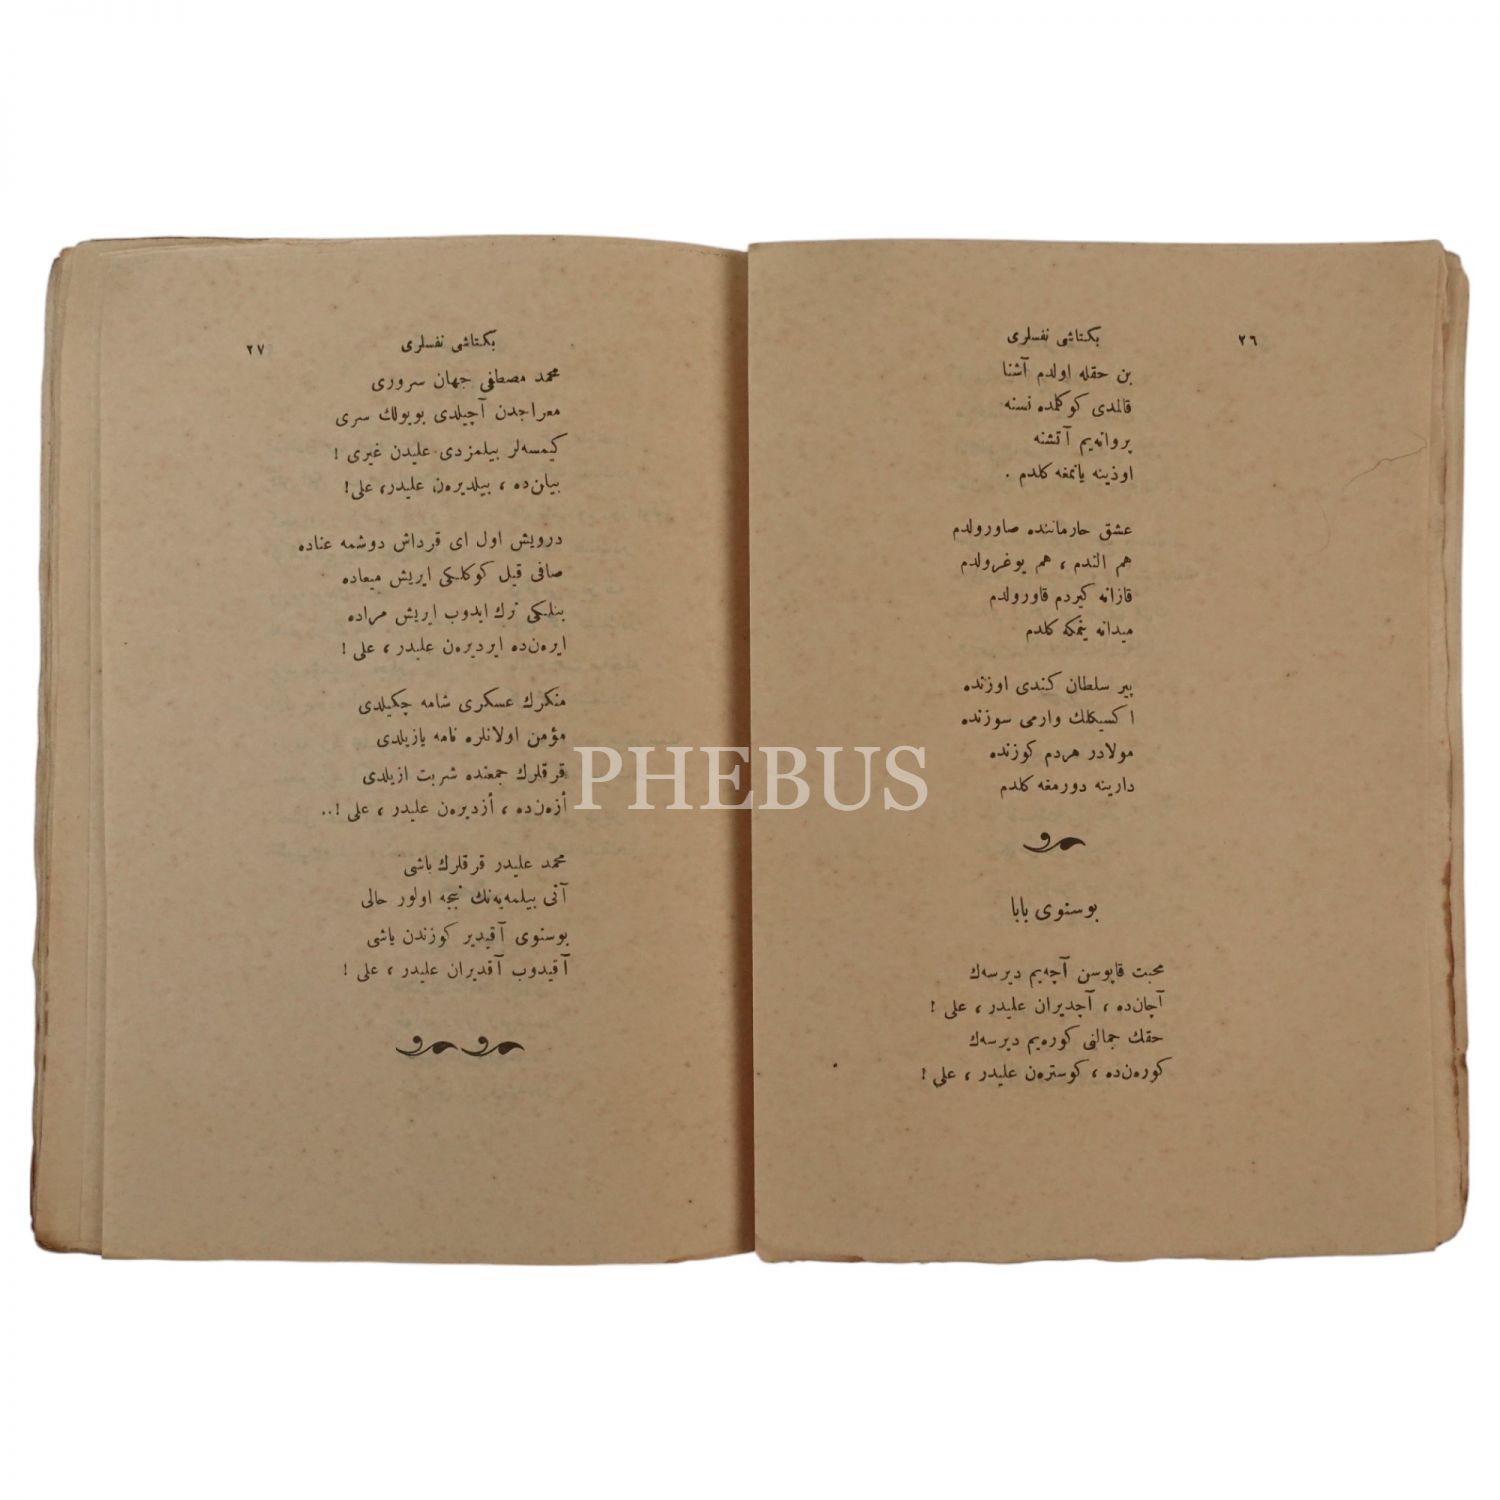 ٢٦
بكتاشی نفسلری
بن حقله اولدم آشنا
قالمدی كوكلمده نسنه
پروانه‌یم آتشنه
اوذینه یانمغه كلدم .
عشق حارماننده صاورولدم
هم الندم ، هم یوغرولدم
قازانه كیردم قاورولدم
میدانه ینمكه كلدم
پیر سلطان كندی اوزنده
اكسیكلك وارمی سوزنده
مولادر هردم كوزنده
دارینه دورمغه كلدم
بوسنوی بابا
محبت قاپوسن آچه‌یم دیرسه‌ك
آچان‌ده ، آچدیران علیدر ، علی !
حقك جمالنی كوره‌یم دیرسه‌ك
كوره‌ن‌ده ، كوستره‌ن علیدر ، علی !
بكتاشی نفسلری
٢٧
محمد مصطفی جهان سروری
معراجدن آچیلدی بویولك سری
كیمسه‌لر بیلمزدی علیدن غیری !
بیلن‌ده ، بیلدیره‌ن علیدر، علی !
درویش اول ای قرداش دوشمه عناده
صافی قیل كوكلكی ایریش میعاده
بنلكی ترك ایدوب ایریش مراده
ایره‌ن‌ده ایردیره‌ن علیدر ، علی !
منكرك عسكری شامه چكیلدی
مؤمن اولانلره نامه یازیلدی
قرقلرك جمعنده شربت ازیلدی
أزه‌ن‌ده ، أزدیره‌ن علیدر ، علی !..
محمد علیدر قرقلرك باشی
آنی بیلمه‌یه‌نك نیجه اولور حالی
بوسنوی آقیدیر كوزندن یاشی
آقیدوب آقدیران علیدر ، علی !
PHEBUS